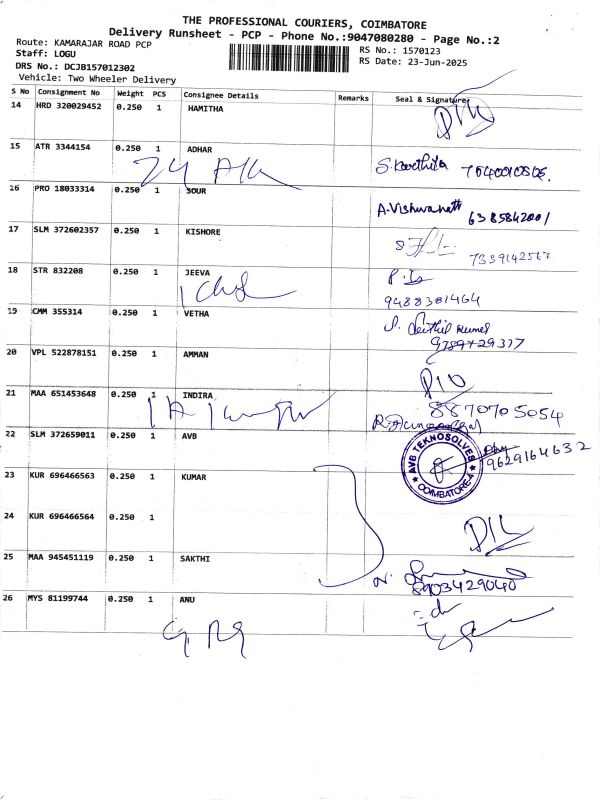 THE PROFESSIONAL COURIERS, COIMBATORE
Delivery Runsheet - PCP - Phone No.:9047080280 - Page No.:2
Route: KAMARAJAR ROAD PCP
Staff: LOGU
DRS No.: DCJB157012302
Vehicle: Two Wheeler Delivery
RS No.: 1570123
RS Date: 23-Jun-2025
S No Consignment No Weight PCS Consignee Details Remarks Seal & Signature
14 HRD 320029452 0.250 1 HAMITHA
15 ATR 3344154 0.250 1 ADHAR
S. Karthika
16 PRO 18033314 0.250 1 SOUR
A. Vishwanath 6385842001
17 SLM 372602357 0.250 1 KISHORE
7339142567
18 STR 832208 0.250 1 JEEVA
9488381464
19 CMM 355314 0.250 1 VETHA
Senthil Kumar
20 VPL 522878151 0.250 1 AMMAN
21 MAA 651453648 0.250 1 INDIRA
8870705054
22 SLM 372659011 0.250 1 AVB
AVB TEKNOSOLVES
COIMBATORE-4
9629164632
23 KUR 696466563 0.250 1 KUMAR
24 KUR 696466564 0.250 1
25 MAA 945451119 0.250 1 SAKTHI
8903429040
26 MYS 81199744 0.250 1 ANU